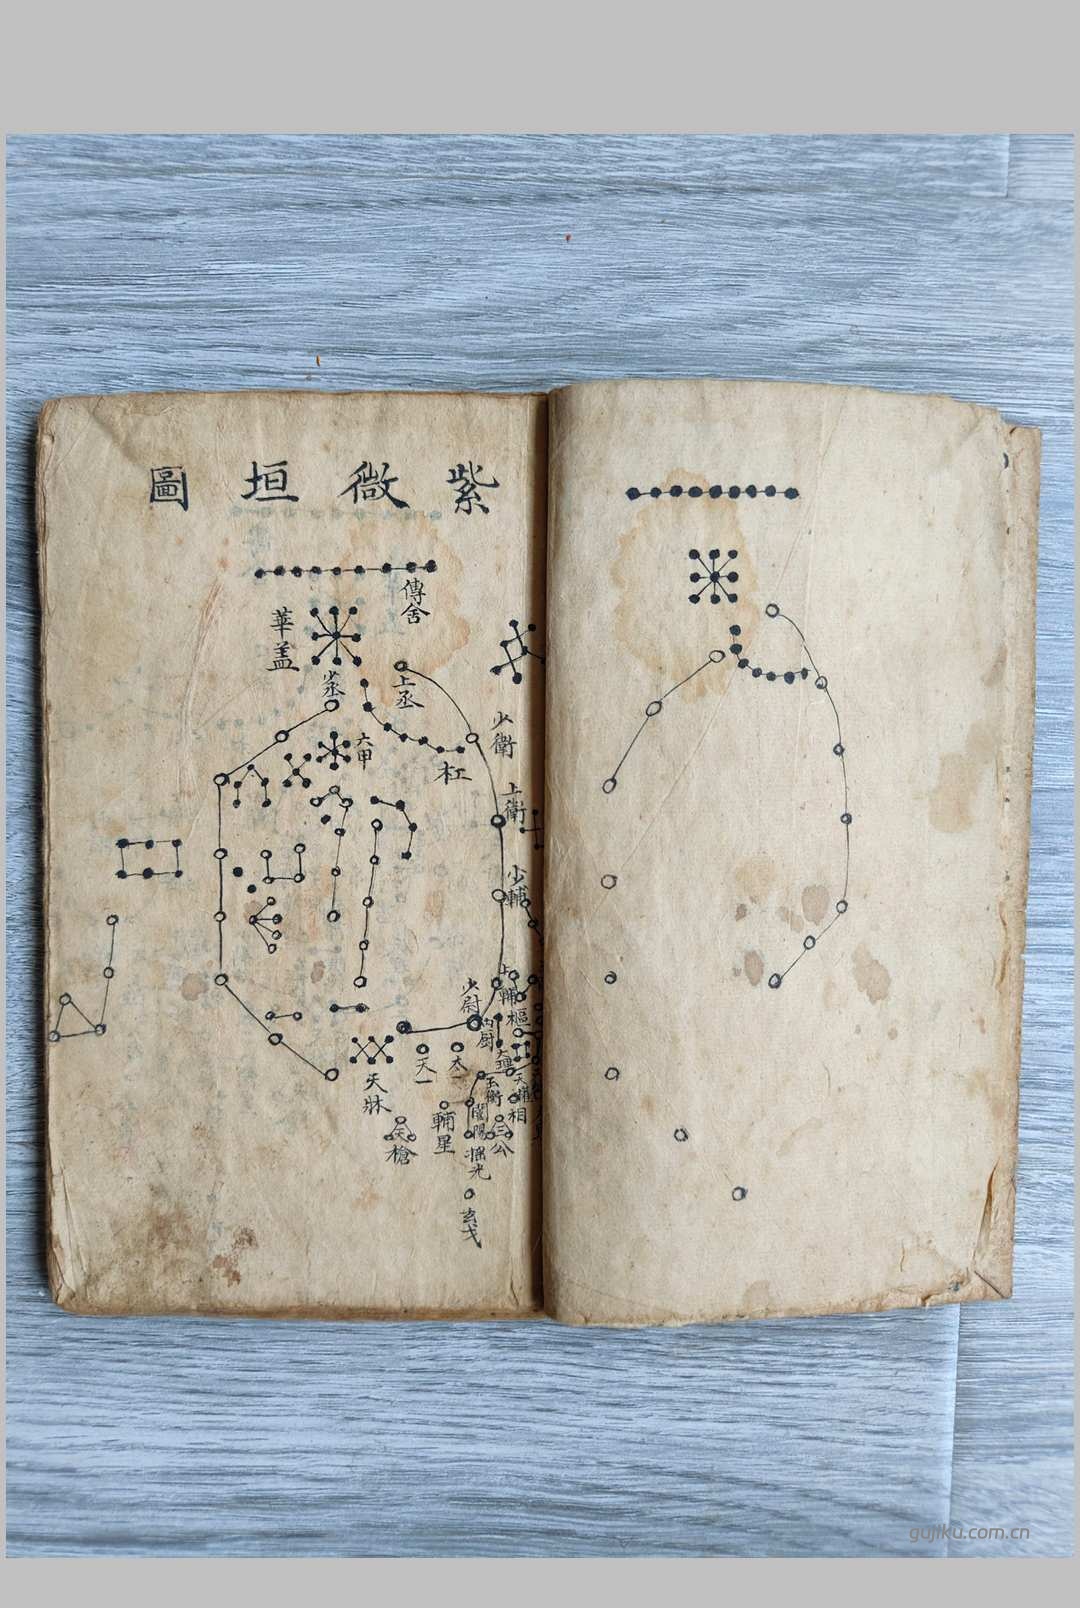 紫微垣圖
傳舍
華盖
上丞
少丞
六甲
杠
少衛
上衛
少輔
上輔
少尉
內厨
樞
天一
太一
玉衡
天牀
輔星
開陽
相
三公
天槍
搖光
玄戈
gujiku.com.cn